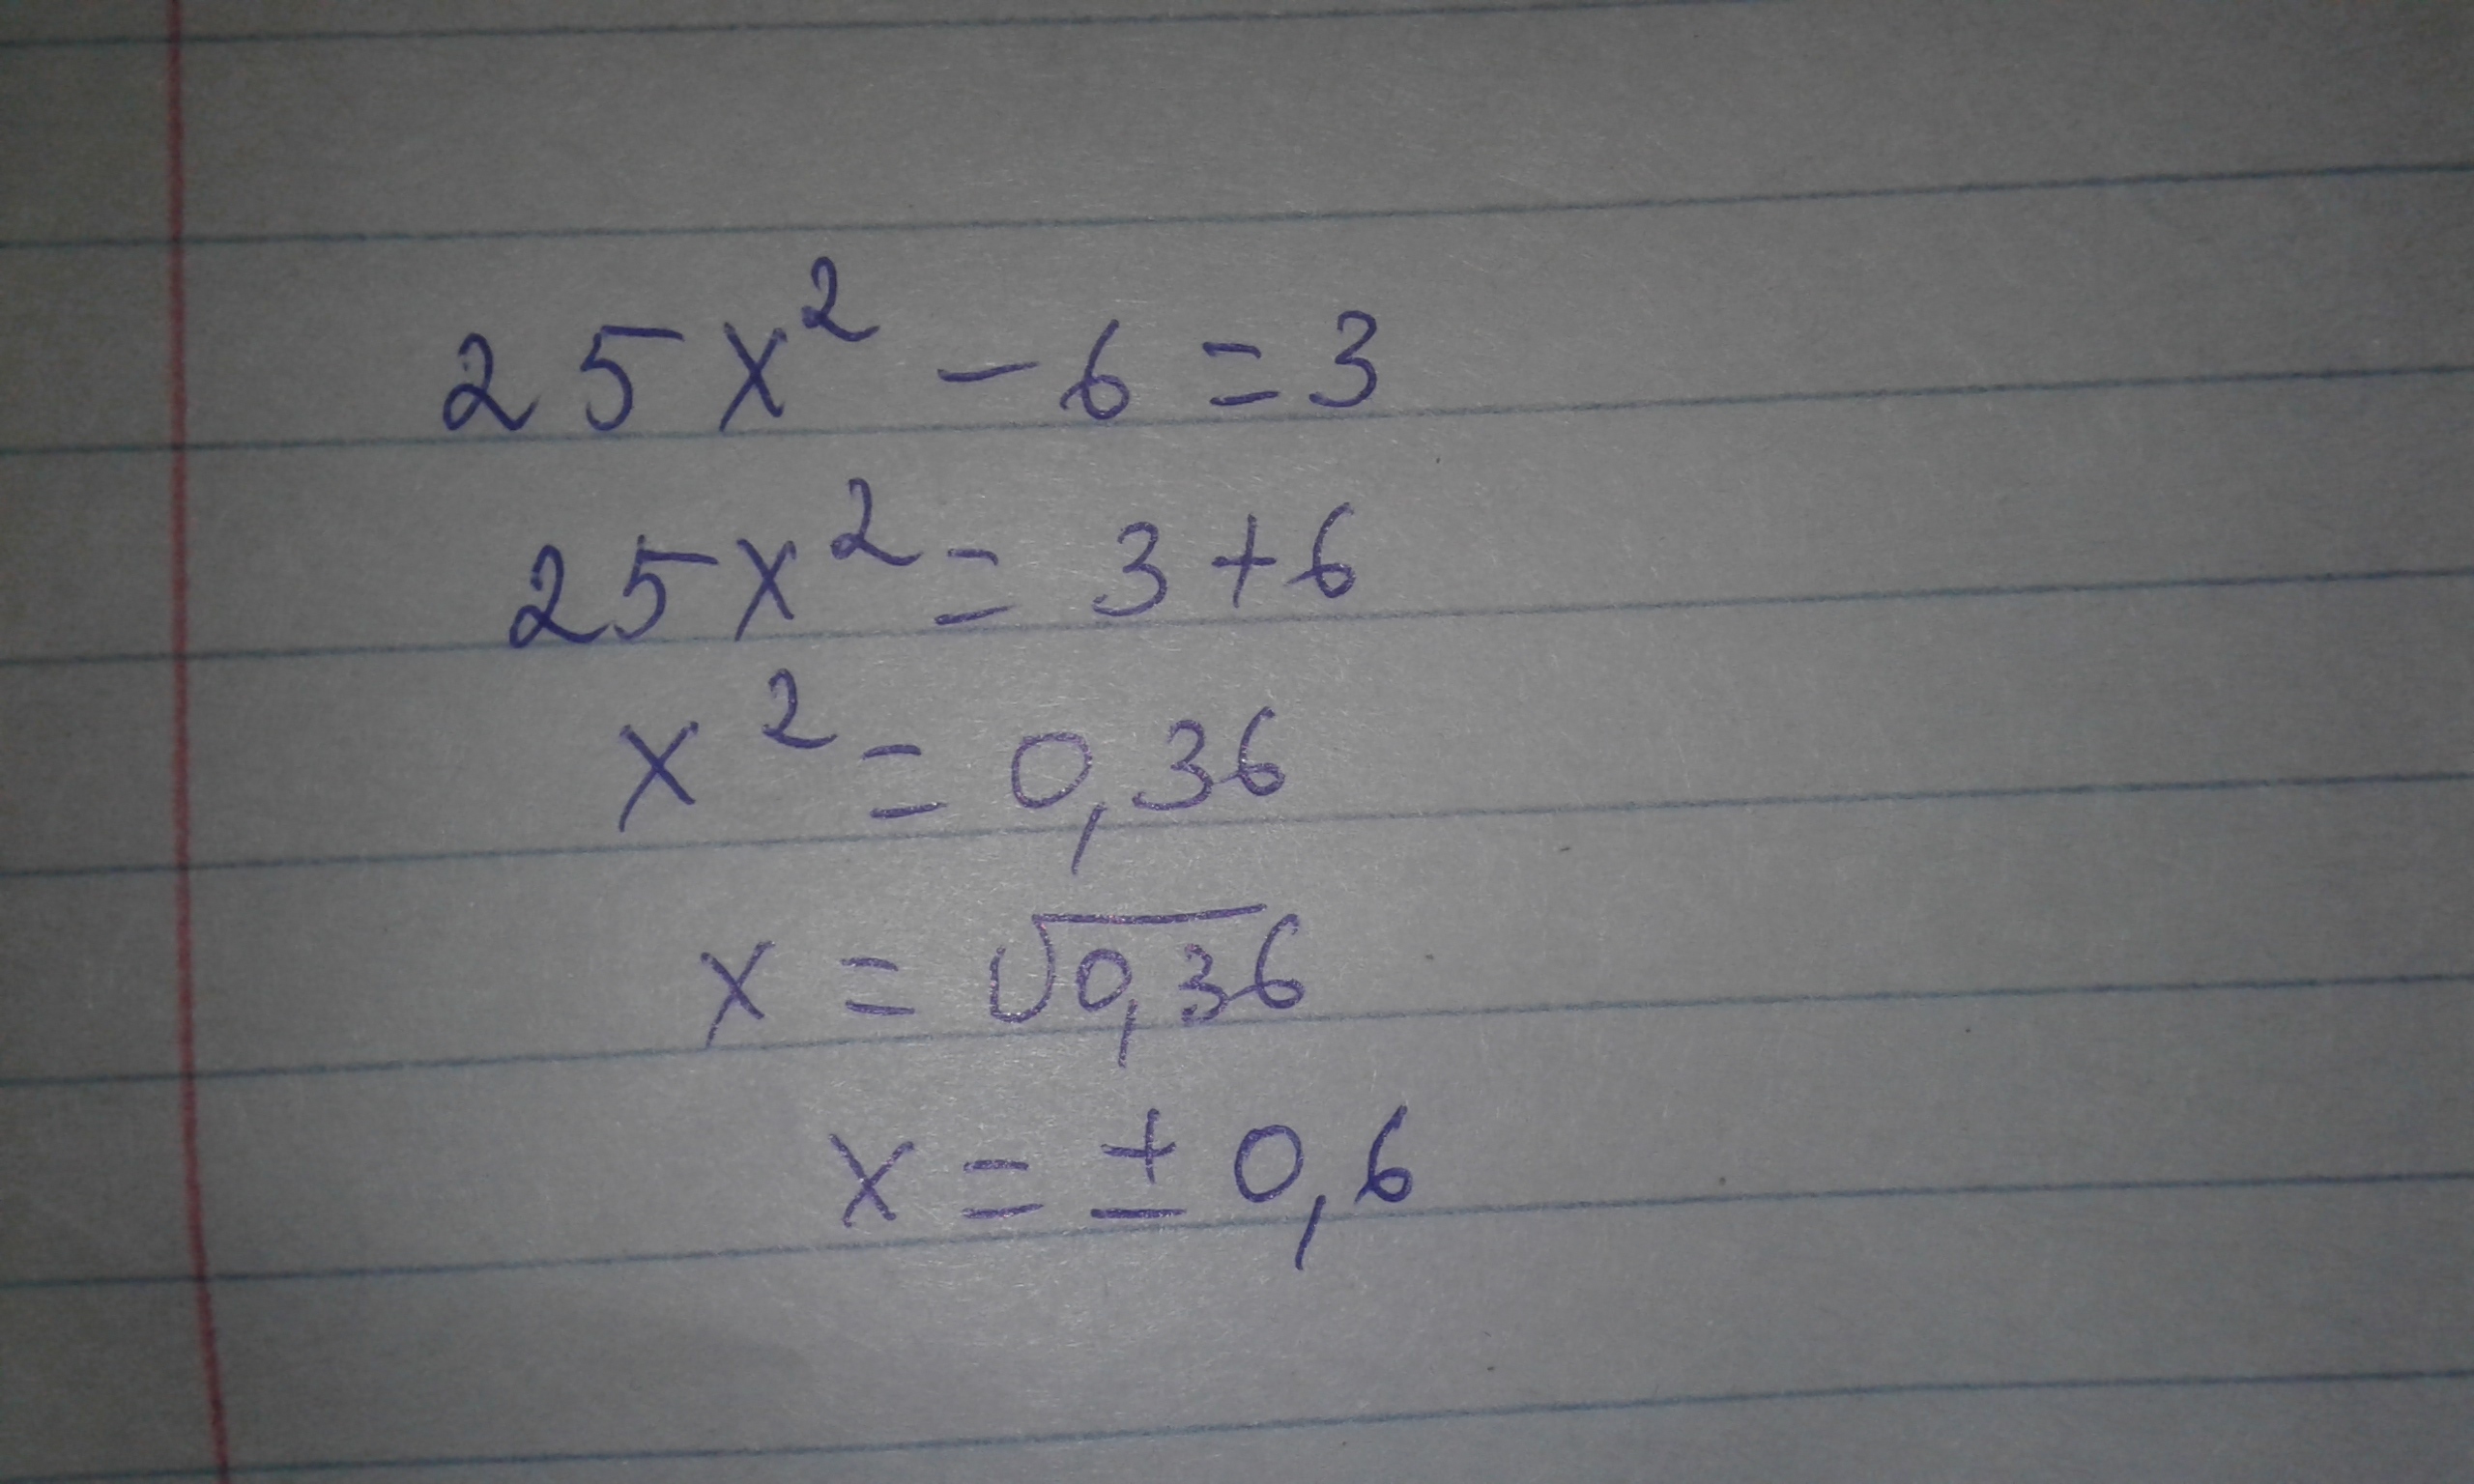 25x² - 6 = 3
25x² = 3 + 6
x² = 0,36
x = √0,36
x = ± 0,6